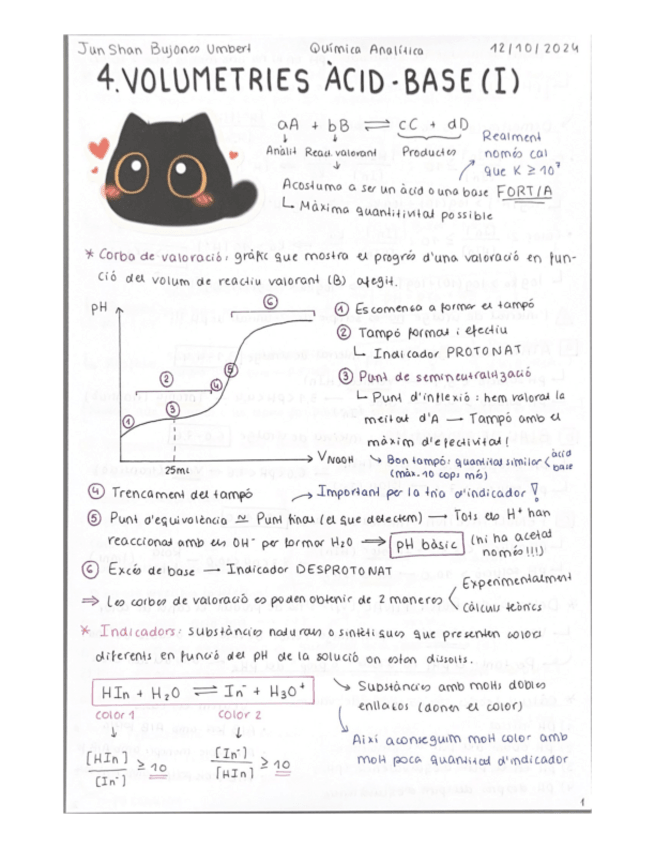 Jun Shan Bujones Umbert Química Analítica 12/10/2024
4. VOLUMETRIES ÀCID-BASE (I)
aA + bB ⇌ cC + dD
Anàlit React. valorant Productes
Realment
només cal
que K ≥ 10⁷
Acostuma a ser un àcid o una base FORT/A
Màxima quantitivitat possible
* Corba de valoració: gràfic que mostra el progrés d'una valoració en fun-
ció del volum de reactiu valorant (B) afegit.
pH
① ② ③ ④ ⑤ ⑥
25mL
V NaOH
① Es comença a formar el tampó
② Tampó format i efectiu
Indicador PROTONAT
③ Punt de semineutralització
Punt d'inflexió: hem valorat la
meitat d'A → Tampó amb el
màxim d'efectivitat!
Bon tampó: quantitat similar < àcid base
(màx. 10 cops més)
④ Trencament del tampó → Important per la tria d'indicador!
⑤ Punt d'equivalència ≃ Punt final (el que detectem) → Tots els H⁺ han
reaccionat amb els OH⁻ per formar H₂O ⟹ pH bàsic (hi ha acetat
només!!!)
⑥ Excés de base → Indicador DESPROTONAT
⇒ Les corbes de valoració es poden obtenir de 2 maneres < Experimentalment
Càlculs teòrics
* Indicadors: substàncies naturals o sintètiques que presenten colors
diferents en funció del pH de la solució on estan dissolts.
HIn + H₂O ⇌ In⁻ + H₃O⁺
color 1 color 2
[HIn]/[In⁻] ≥ 10 [In⁻]/[HIn] ≥ 10
Substàncies amb molts dobles
enllaços (donen el color)
Així aconseguim molt color amb
molt poca quantitat d'indicador
1